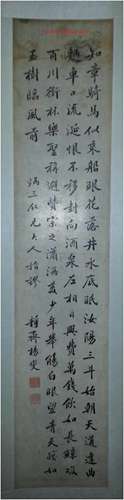 知章騎馬似乘船眼花落井水底眠汝陽三斗始朝天道逢曲
車口流涎恨不移封向酒泉左相日興費萬錢飲如長鯨吸
百川銜杯樂聖稱避賢宗之瀟灑美少年舉觴白眼望青天皎如
玉樹臨風前
炳三仁兄大人指謬